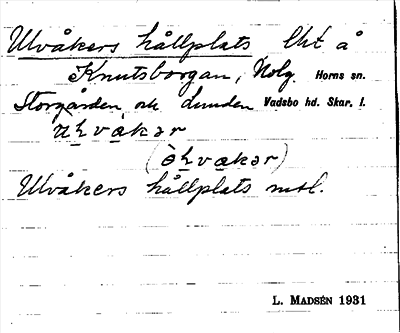 Ulvåkers hållplats lht å
Knutsborgan, Nolg. Horns sn.
Storgården, ok Lunden Vadsbo hd. Skar. l.
ʉ̀ḷvakər
(ɷ̀ḷvakər)
Ulvåkers hållplats mtl.
L. MADSÉN 1931